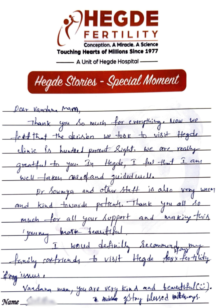 HEGDE
FERTILITY
Conception. A Miracle. A Science
Touching Hearts of Millions Since 1977
A Unit of Hegde Hospital
Hegde Stories - Special Moment
Dear Vandana Mam,
Thank you so much for everything. Now we
felt that the decision we took to visit Hegde
clinic is hundred percent Right. We are really
grateful to you. In Hegde, I felt that I am
well taken care of and guided well.
Dr Sowmya and other staff is also very warm
and kind towards patients. Thank you all so
much for all your support and making this
journey beautiful
I would definitely recommend my
family & friends to visit Hegde for
any issues.
Vandana mam, you are very kind and beautiful
stay blessed
Name